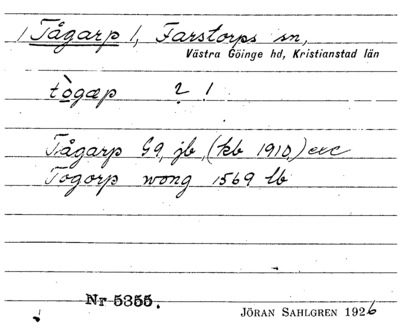 / Tågarp /, Farstorps sn,
Västra Göinge hd, Kristianstad län
tògæp 2 1
Tågarp G9, jb, (kb 1910) etc
Togorp wong 1569 lb
Nr 5355.
JÖRAN SAHLGREN 1926